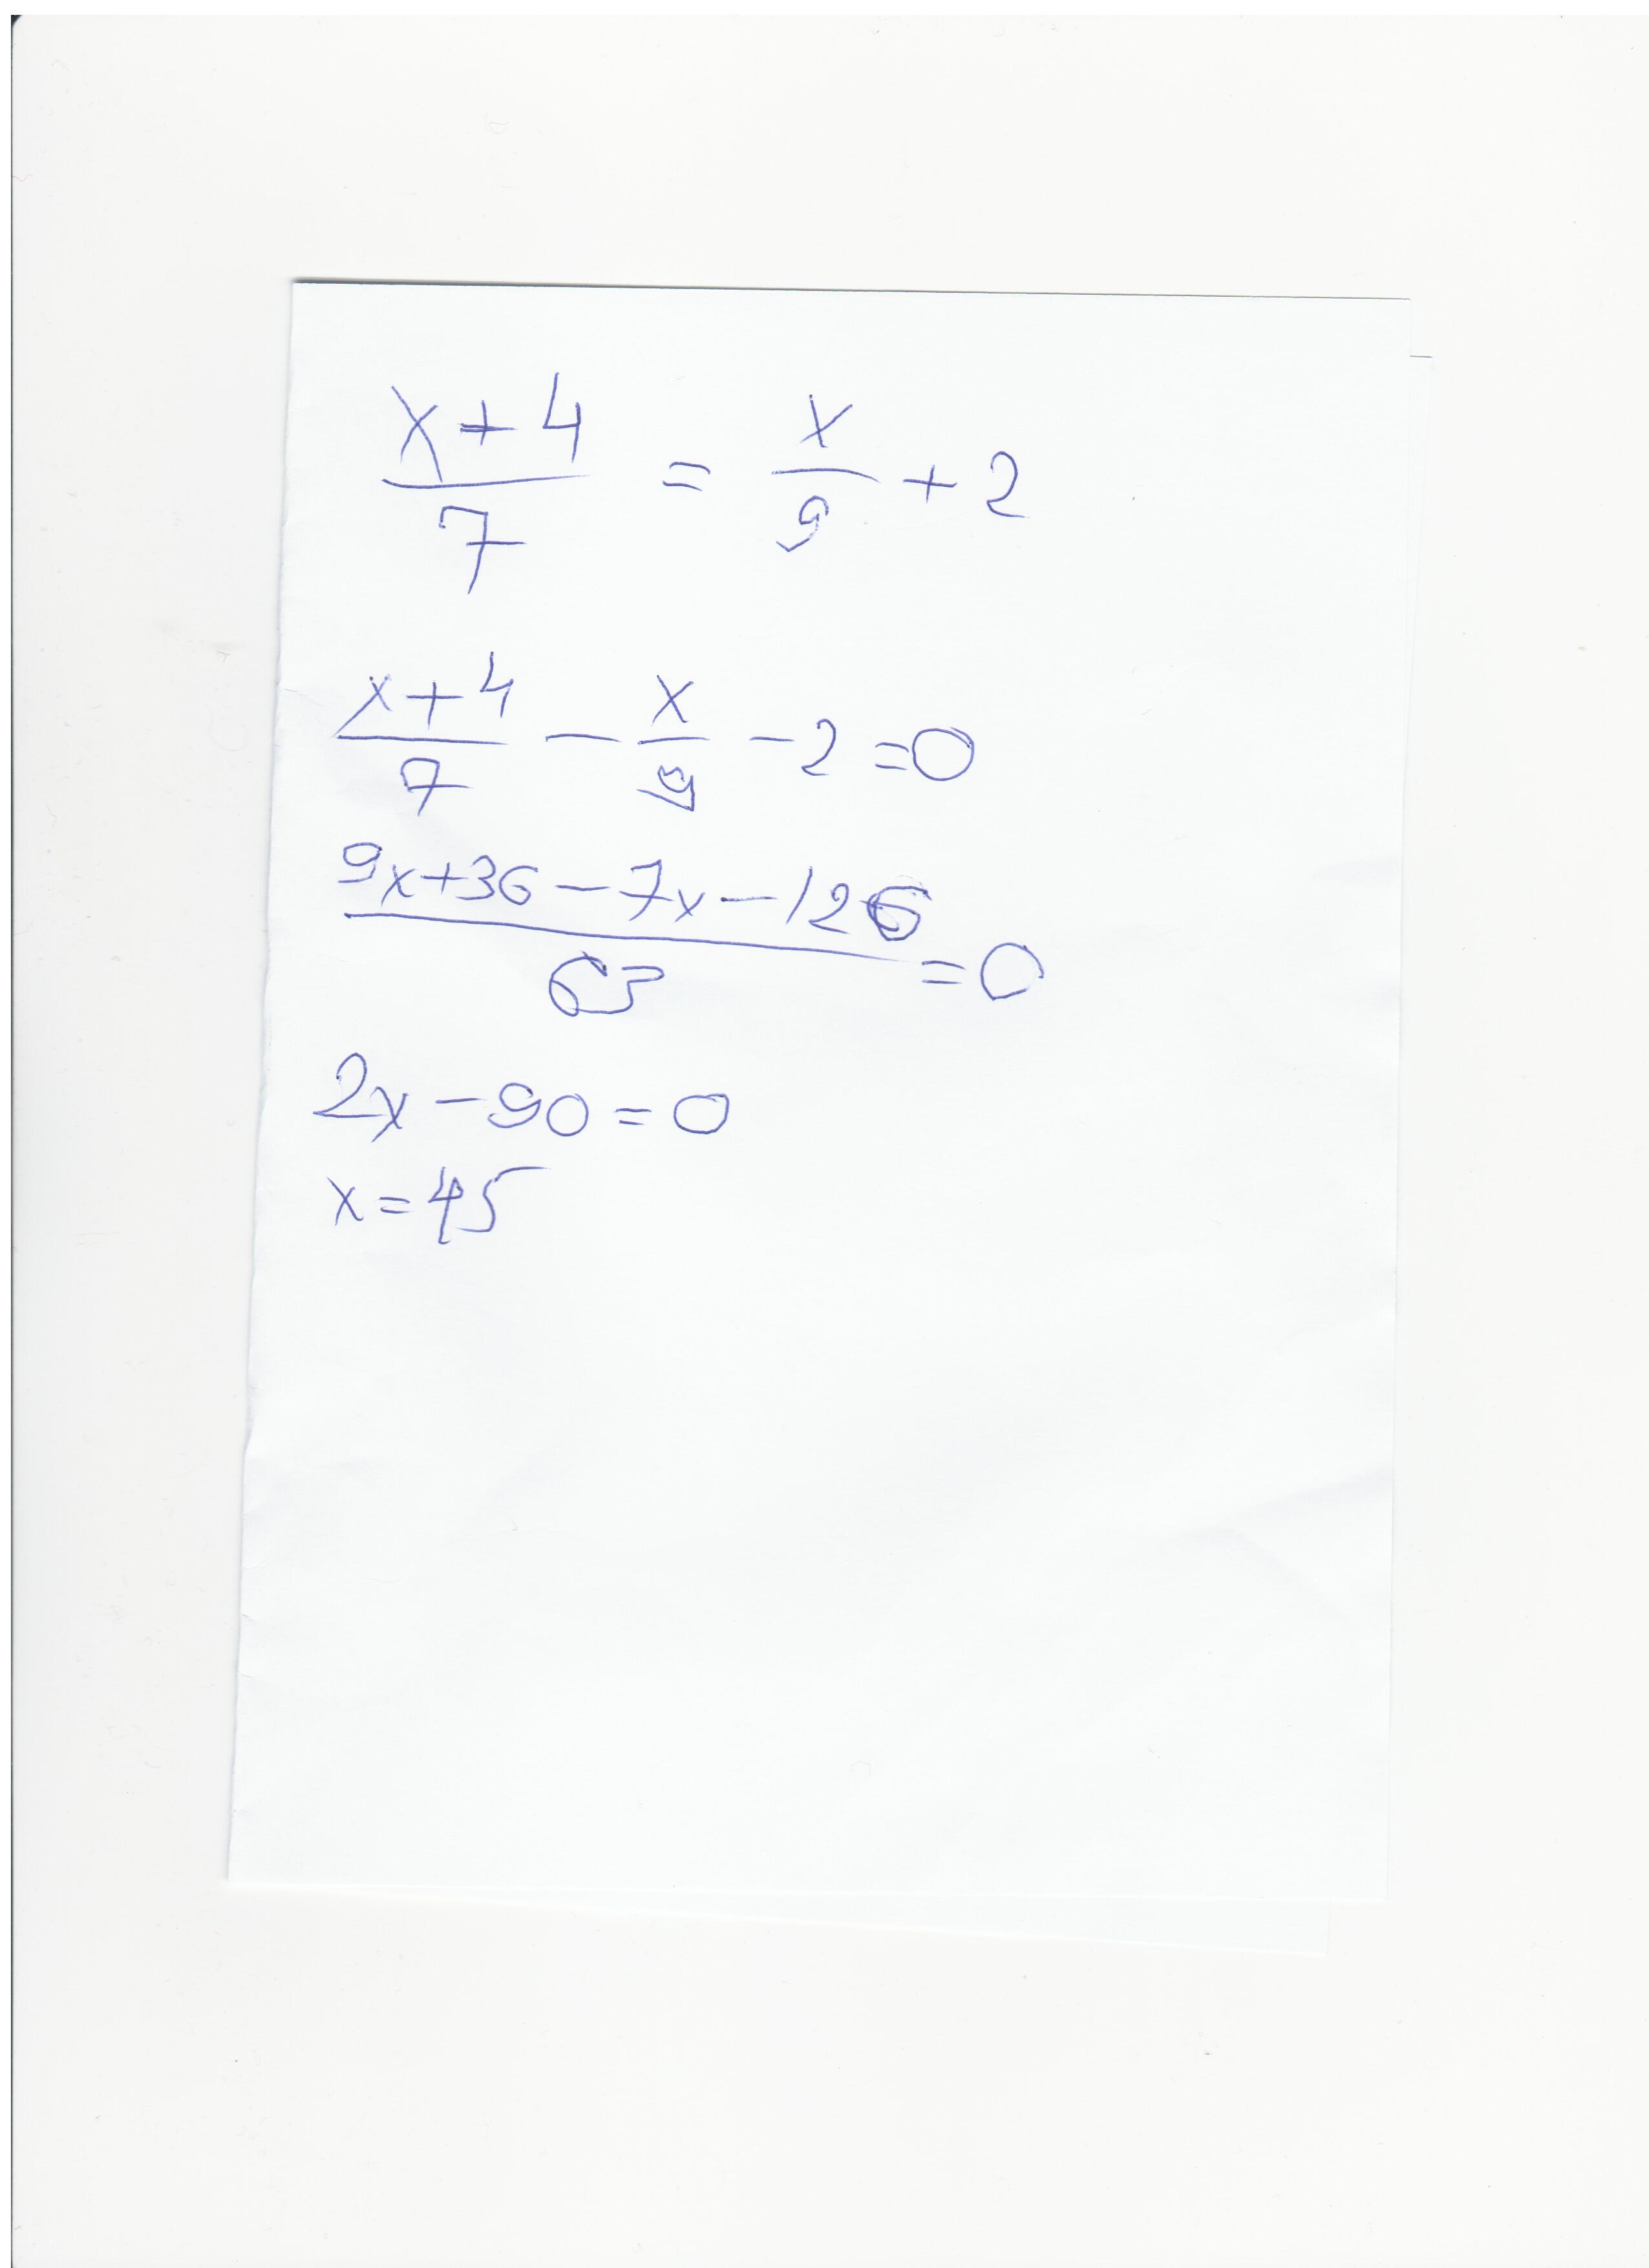 (x+4)/7 = x/9 + 2
(x+4)/7 - x/9 - 2 = 0
(9x+36-7x-126)/63 = 0
2x-90=0
x=45